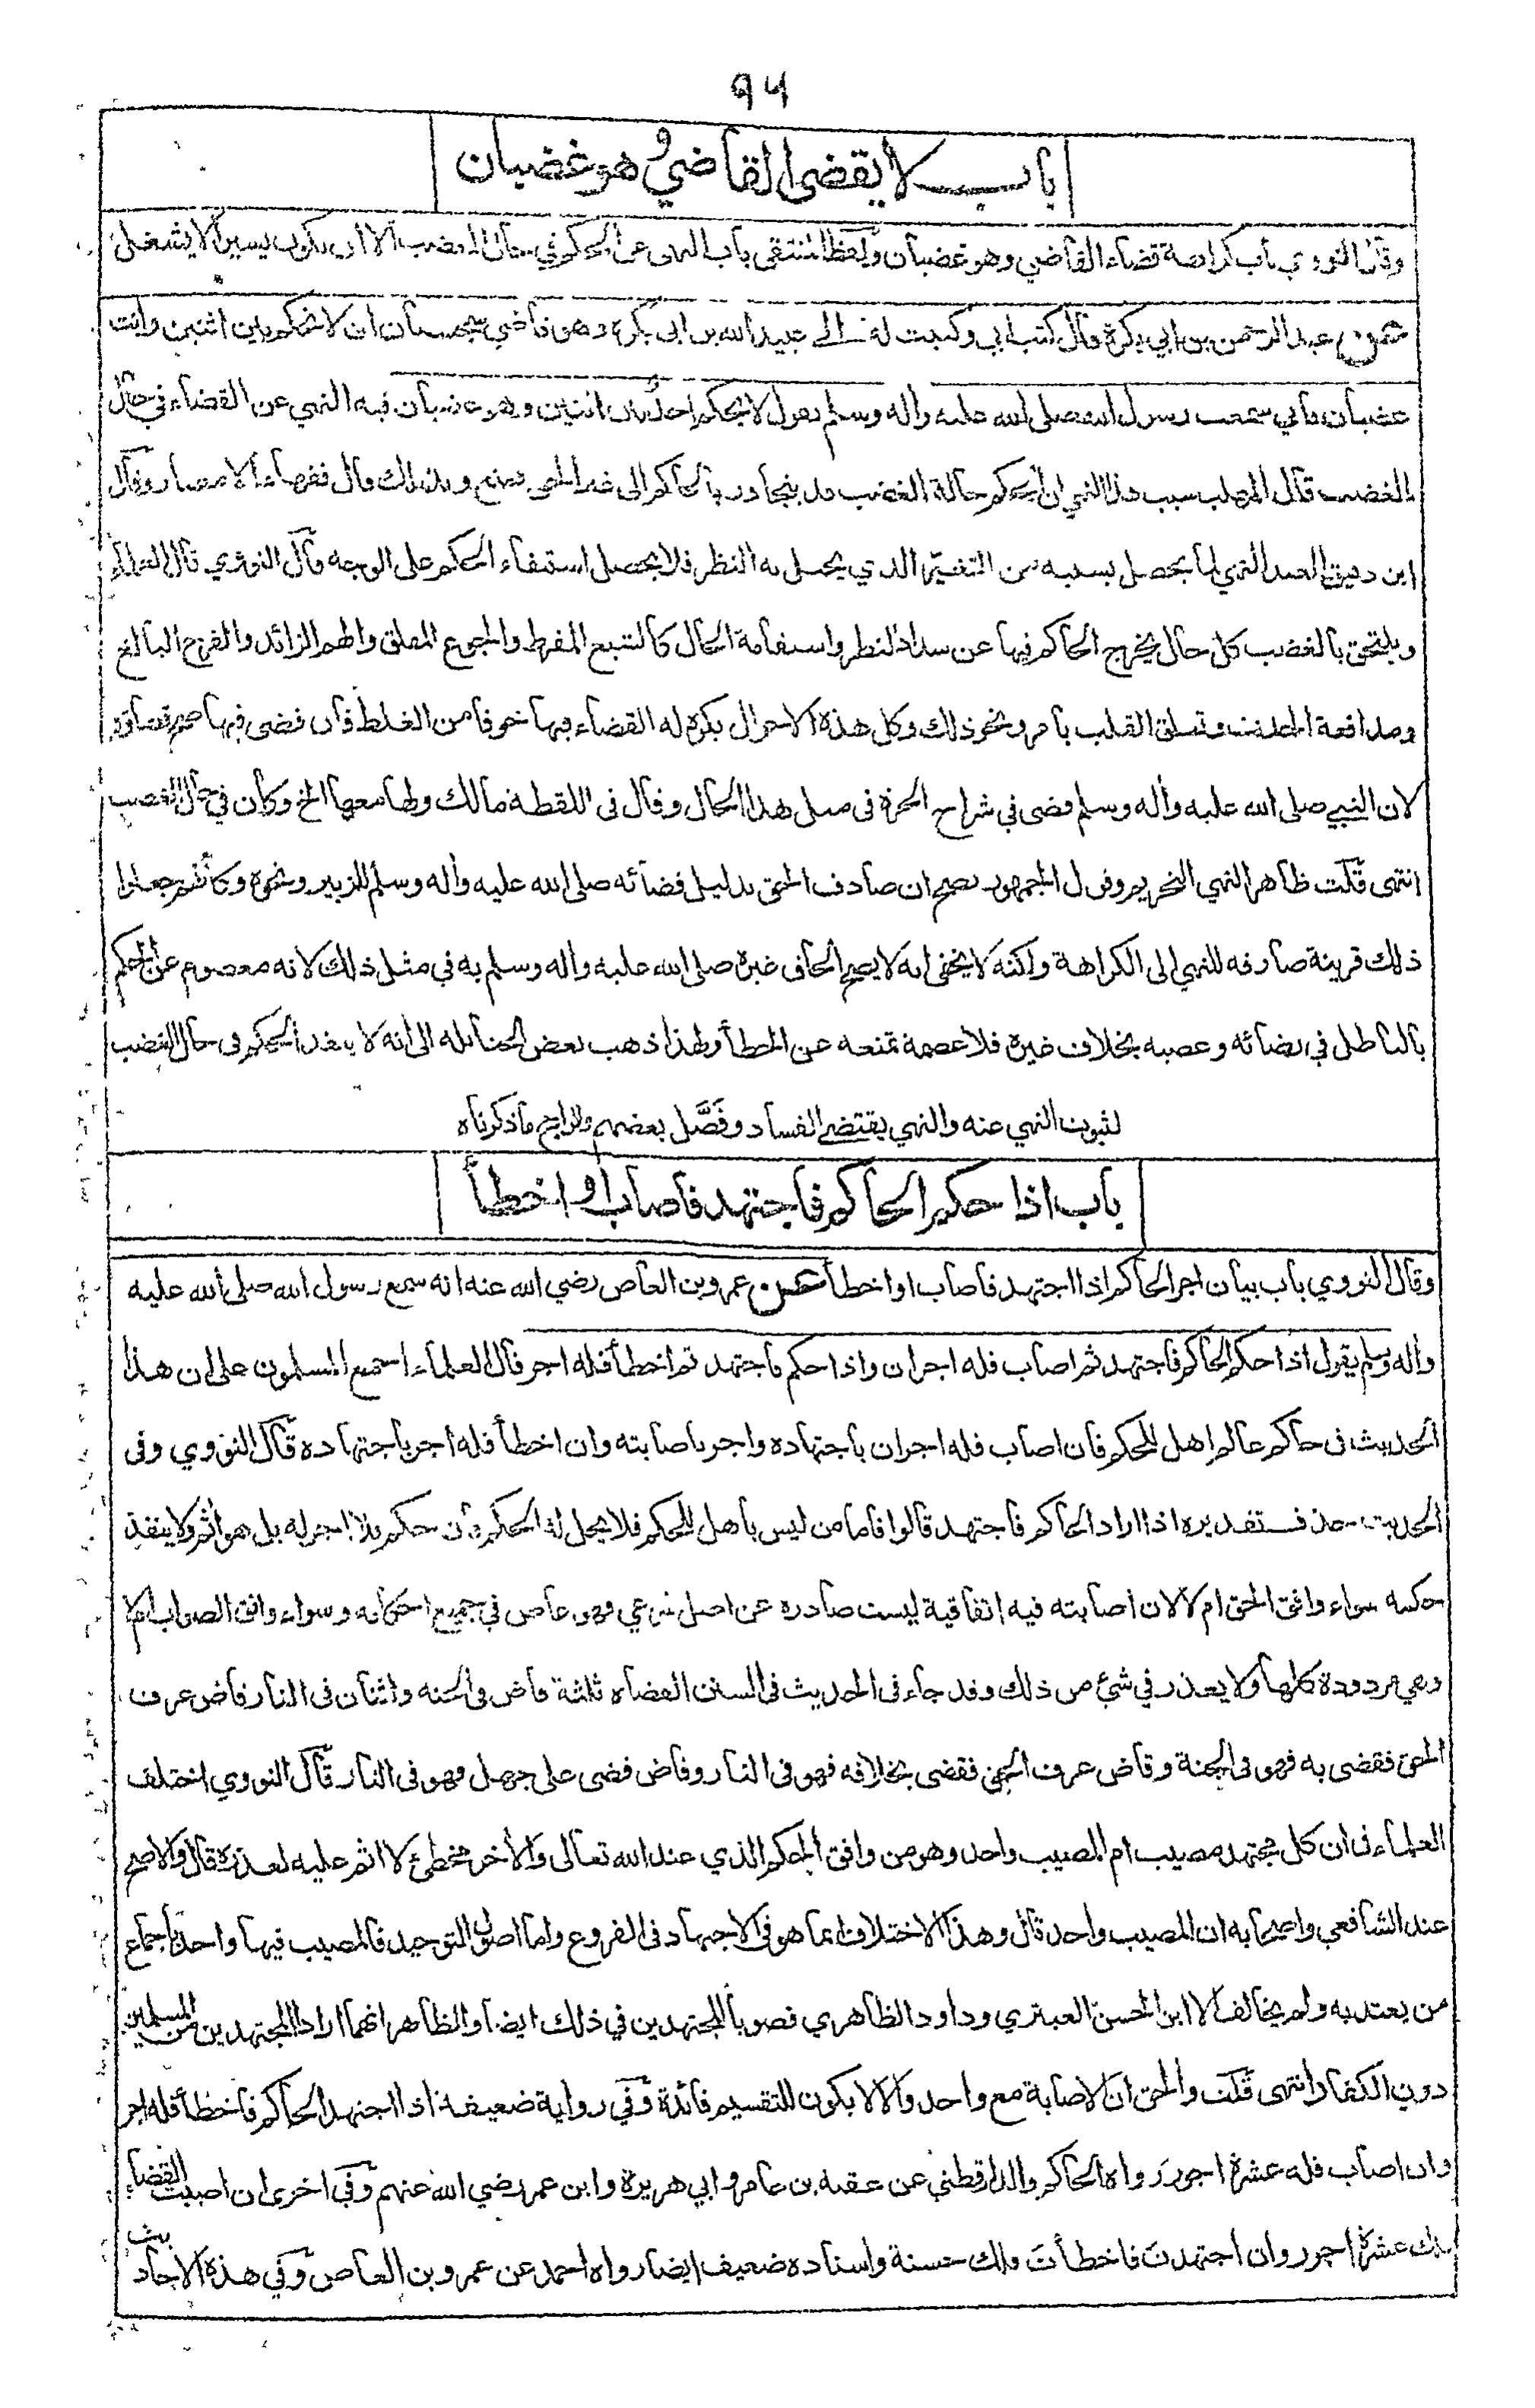 ٩٥
باب لا يقضى القاضي وهو غضبان
وقال النووي باب كراهة قضاء القاضي وهو غضبان ولفظ المنتقى باب النهى عن الحكم في حال الغضب الا ان يكون يسيرا لا يشغل
عن عبد الرحمن بن ابي بكرة قال كتب ابي وكتبت له الى عبيد الله بن ابى بكرة وهو قاضي بسجستان ان لا تحكم بين اثنين وانت
غضبان فاني سمعت رسول الله صلى الله عليه واله وسلم يقول لا يحكم احد بين اثنين وهو غضبان فيه النهي عن القضاء في حال
الغضب قال المهلب سبب هذا النهي ان الحكم حالة الغضب قد يتجاوز بالحاكم الى غير الحق فمنع وبذلك قال فقهاء الامصار وقال
ابن دقيق العيد النهي لما يحصل بسببه من التغير الذي يختل به النظر فلا يحصل استيفاء الحكم على الوجه قال النووي قال العلماء
ويلتحق بالغضب كل حال يخرج الحاكم فيها عن سداد النظر واستقامة الحال كالشبع المفرط والجوع المقلق والهم الزائد والفرح البالغ
ومدافعة الحدث وتعلق القلب بامر ونحو ذلك وكل هذه الاحوال يكره له القضاء فيها خوفا من الغلط فان قضى فيها صح قضاؤه
لان النبي صلى الله عليه واله وسلم قضى في شراج الحرة في مثل هذا الحال وقال فى اللقطة مالك ولها معها الخ وكان في حال الغضب
انتهى قلت ظاهر النهي التحريم وقول الجمهور يصح ان صادف الحق بدليل قضائه صلى الله عليه واله وسلم للزبير ونحوه وكأنهم جعلوا
ذلك قرينة صارفة للنهي الى الكراهة ولكنه لا يخفى انه لا يصح الحاق غيره صلى الله عليه واله وسلم به في مثل ذلك لانه معصوم عن الحكم
بالباطل في رضائه وغضبه بخلاف غيره فلا عصمة تمنعه عن الخطأ ولهذا ذهب بعض الحنابلة الى انه لا ينفذ الحكم فى حال الغضب
لثبوت النهي عنه والنهي يقتضي الفساد وفَصَّل بعضهم والراجح ما ذكرناه
باب اذا حكم الحاكم فاجتهد فاصاب او اخطأ
وقال النووي باب بيان اجر الحاكم اذا اجتهد فاصاب او اخطأ عن عمرو بن العاص رضي الله عنه انه سمع رسول الله صلى الله عليه
واله وسلم يقول اذا حكم الحاكم فاجتهد ثم اصاب فله اجران واذا حكم فاجتهد ثم اخطأ فله اجر قال العلماء اجمع المسلمون على ان هذا
الحديث فى حاكم عالم اهل للحكم فان اصاب فله اجران باجتهاده واجر باصابته وان اخطأ فله اجر باجتهاده قال النووي وفى
الحديث حذف تقديره اذا اراد الحاكم فاجتهد قالوا فاما من ليس باهل للحكم فلا يحل له الحكم فان حكم فلا اجر له بل هو اثم ولا ينفذ
حكمه سواء وافق الحق ام لا لان اصابته فيه اتفاقية ليست صادرة عن اصل شرعي فهو عاص في جميع احكامه وسواء وافق الصواب ام لا
وهي مردودة كلها ولا يعذر في شئ من ذلك وقد جاء فى الحديث فى السنن القضاة ثلثة قاض فى الجنة واثنان فى النار قاض عرف
الحق فقضى به فهو فى الجنة وقاض عرف الحق فقضى بخلافه فهو فى النار وقاض قضى على جهل فهو فى النار قال النووي اختلف
العلماء فى ان كل مجتهد مصيب ام المصيب واحد وهو من وافق الحكم الذي عند الله تعالى والأخر مخطئ لا اثم عليه لعذره قال والاصح
عند الشافعي واصحابه ان المصيب واحد قال وهذا الاختلاف انما هو فى الاجتهاد فى الفروع واما اصول التوحيد فالمصيب فيها واحد باجماع
من يعتد به ولم يخالف الا ابن الحسن العبتري وداود الظاهري فصوبا المجتهدين في ذلك ايضا والظاهر انهما ارادا المجتهدين من المسلمين
دون الكفار انتهى قلت والحق ان الاصابة مع واحد والا لا يكون للتقسيم فائدة وفي رواية ضعيفة اذا اجتهد الحاكم فاخطأ فله اجر
وان اصاب فله عشرة اجور رواه الحاكم والدارقطني عن عقبة بن عامر وابي هريرة وابن عمر رضي الله عنهم وفى اخرى ان اصبت القضاء
فلك عشرة اجور وان اجتهدتَ فاخطأتَ فلك حسنة واسناده ضعيف ايضا رواه احمد عن عمرو بن العاص وفي هذه الاحاديث